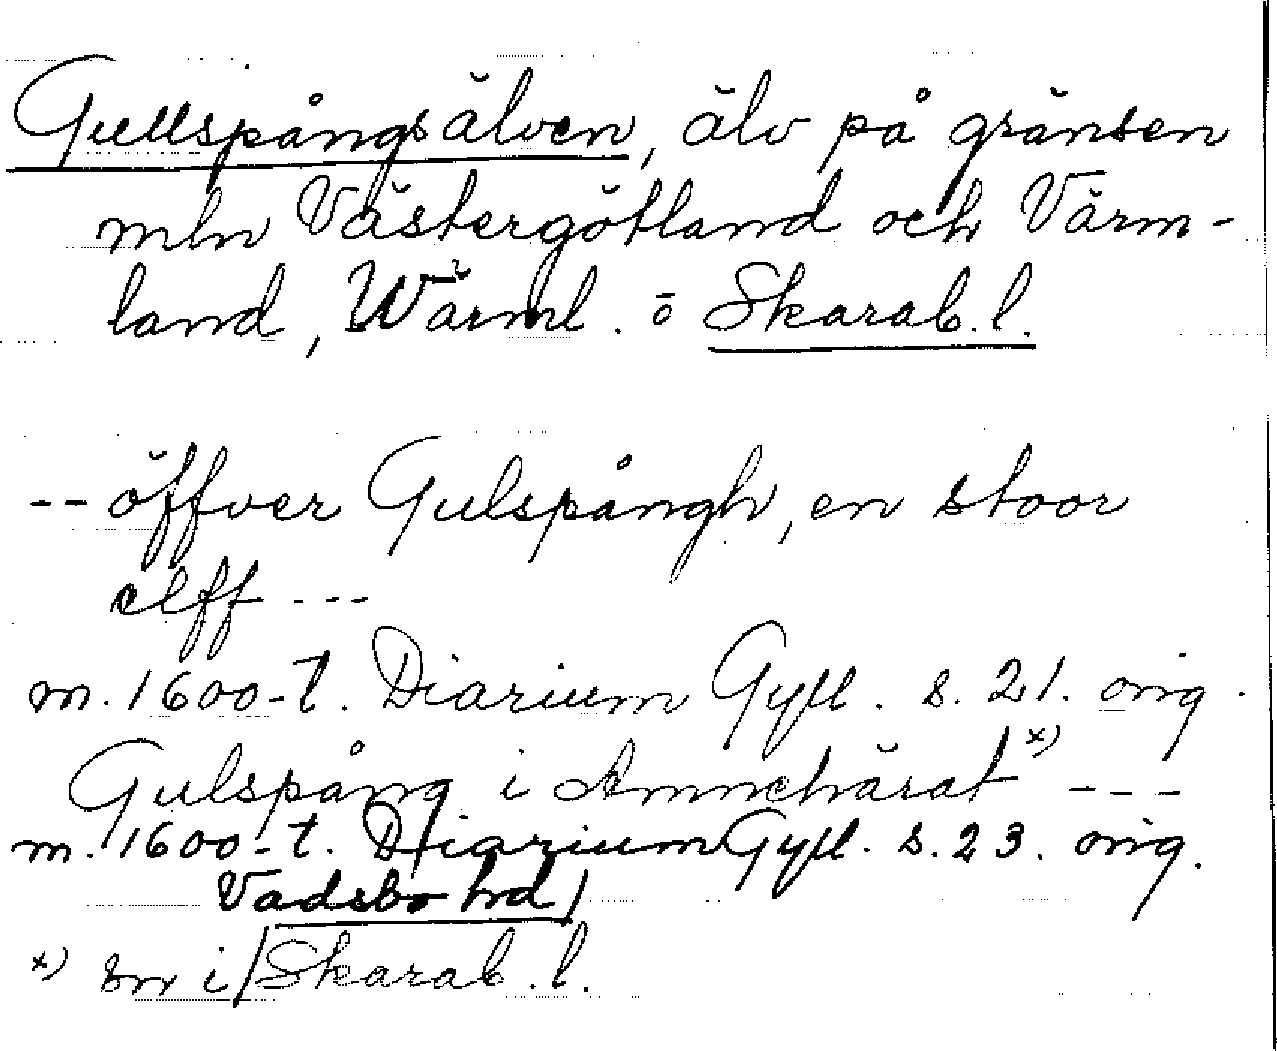 Gullspångsälven, älv på gränsen
mln Västergötland och Värm-
land, Wärml. o Skarab. l.
-- öffver Gulspångh, en stoor
elff ---
m. 1600-t. Diarium Gyll. s. 21. orig.
Gulspång i Amnehärat x) ---
m. 1600-t. Diarium Gyll. s. 23. orig.
Vadsbo hd
x) sn i Skarab. l.